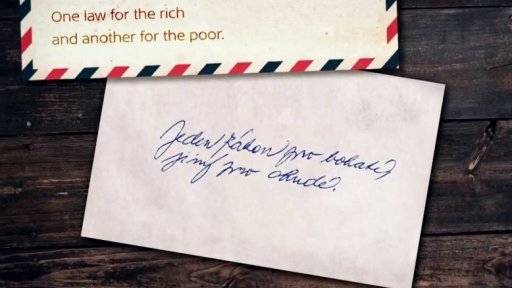 One law for the rich
and another for the poor.
Jeden zákon pro bohaté,
jiný pro chudé.